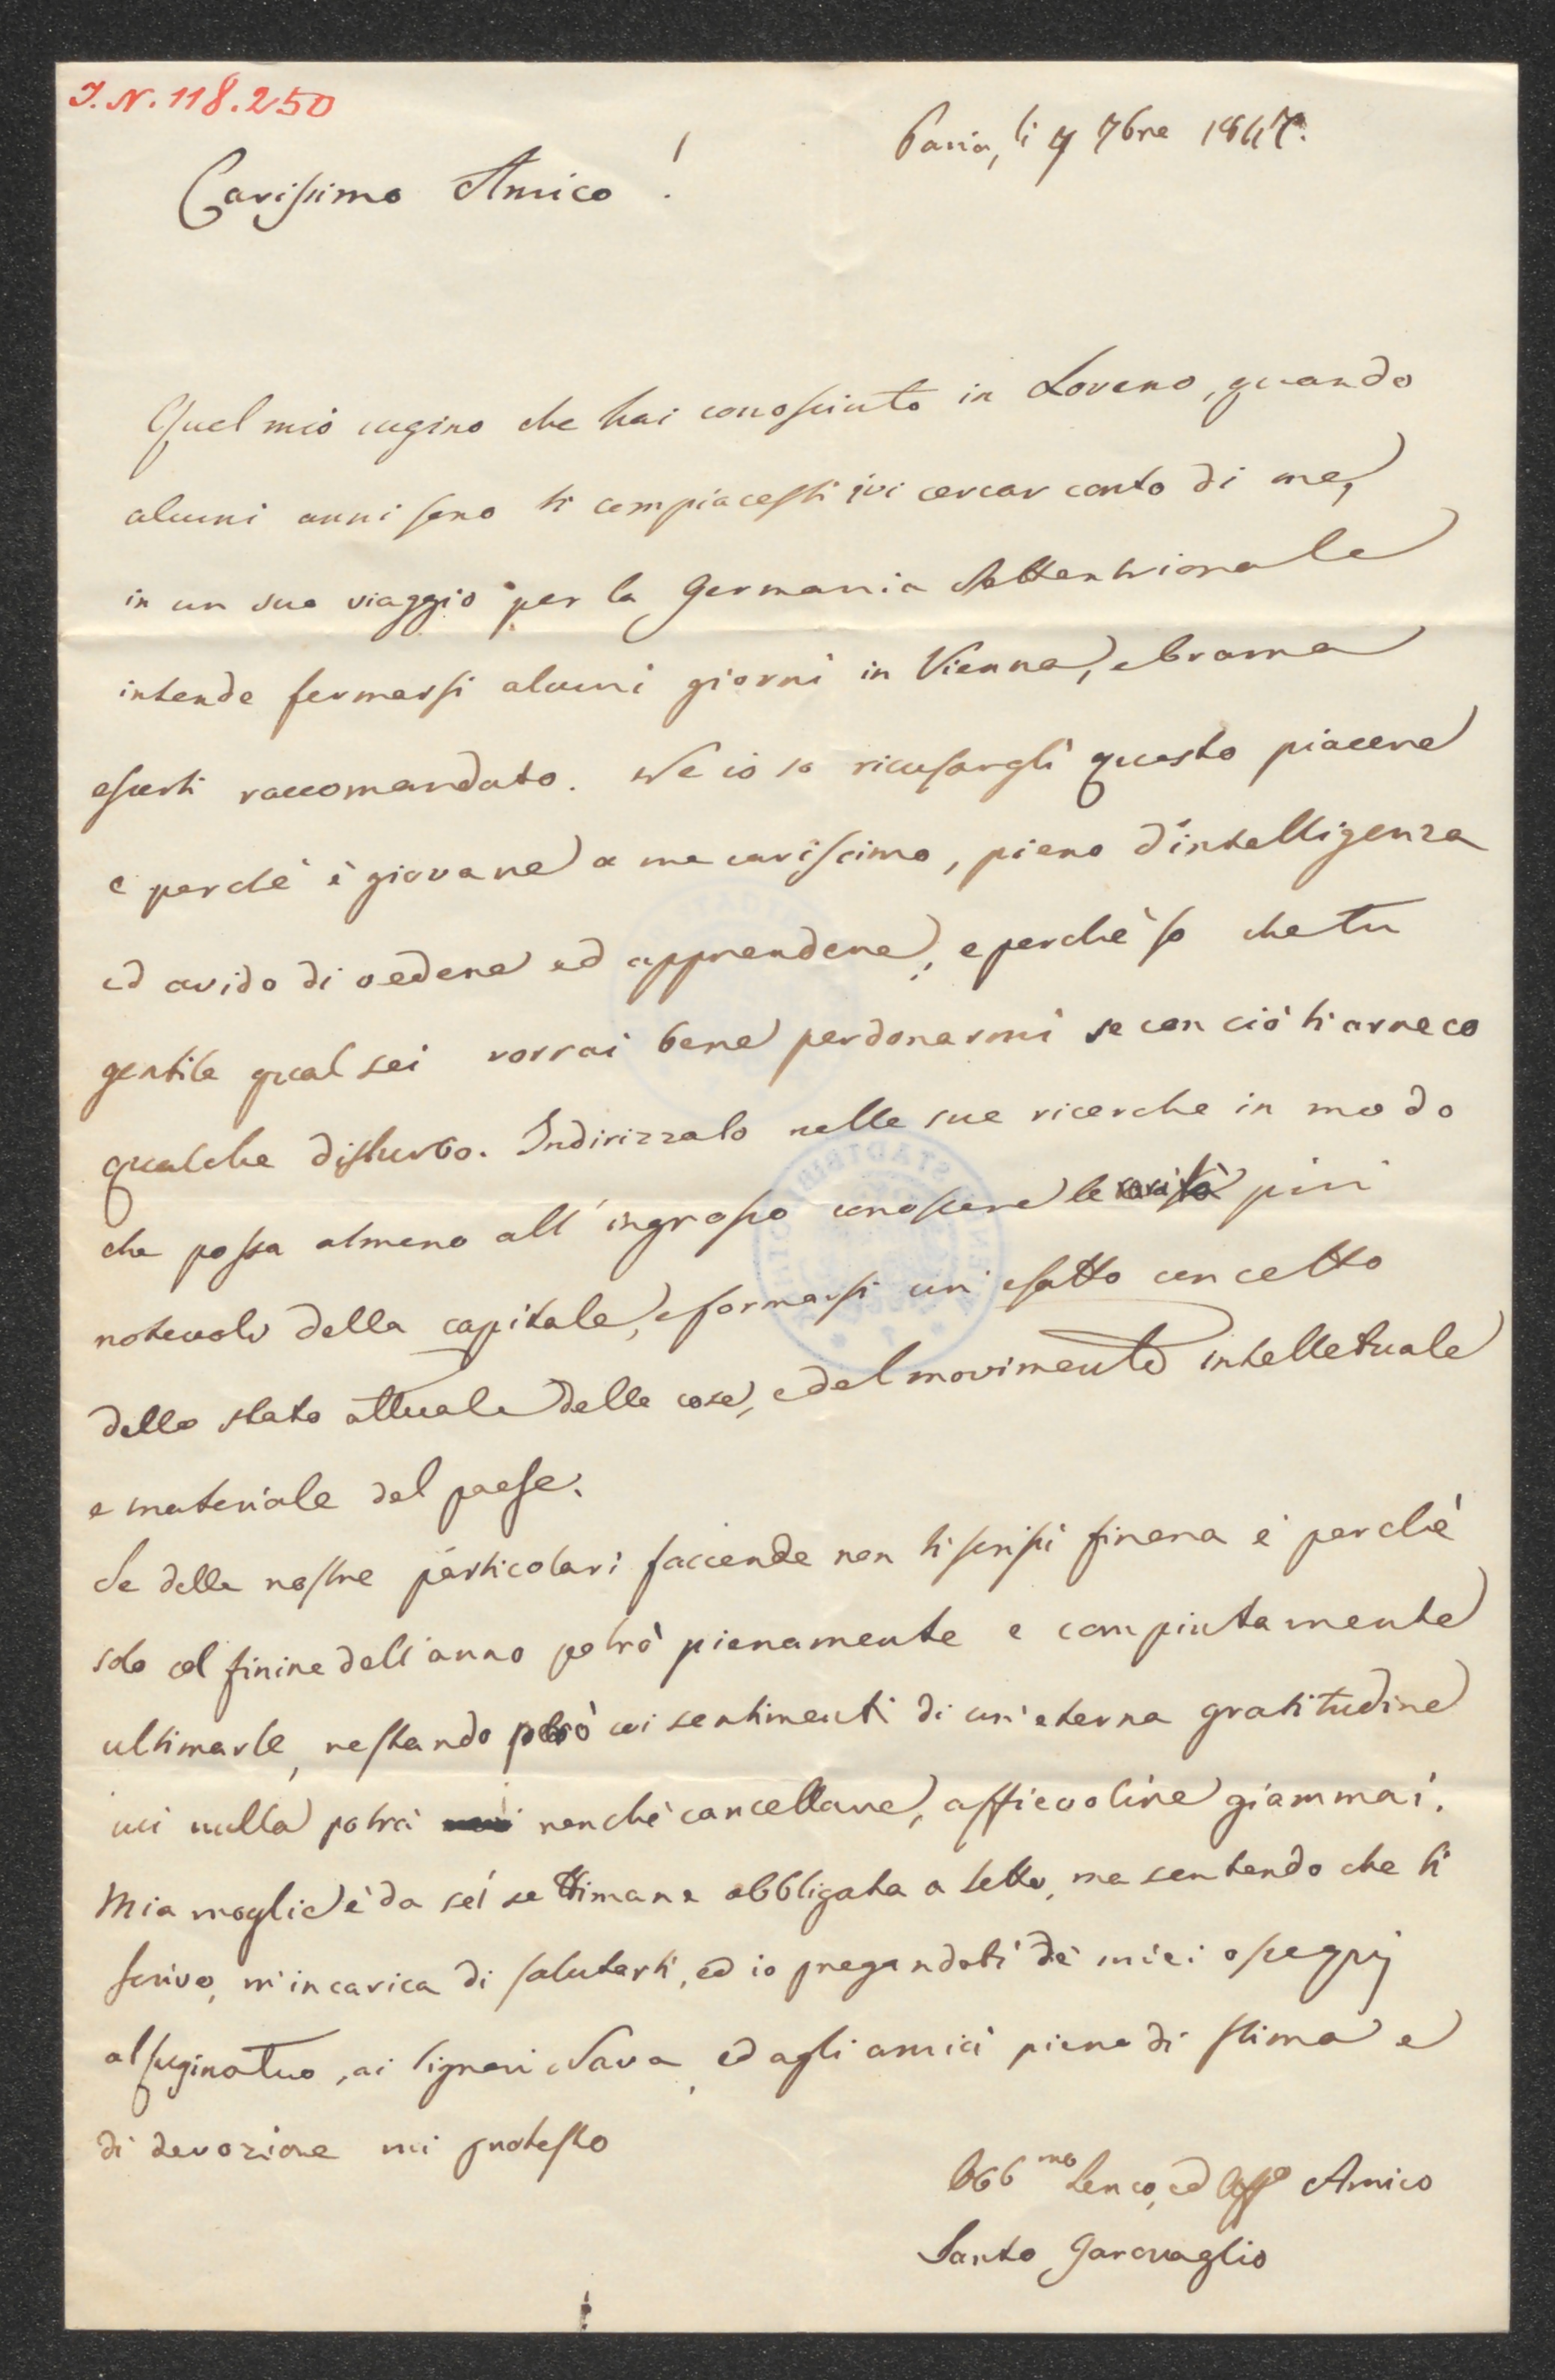 I. N. 118.250
Pavia, li 9 7bre 1847.
Carissimo Amico!
Quel mio cugino che hai conosciuto in Loveno, quando
alcuni anni sono ti compiacesti ivi cercar conto di me,
in un suo viaggio per la Germania Settentrionale
intende fermarsi alcuni giorni in Vienna, e brama
esserti raccomandato. Ne io so ricusargli questo piacere
e perchè è giovane a me carissimo, pieno d'intelligenza
ed avido di vedere ed apprendere, e perchè so che tu
gentile qual sei vorrai bene perdonarmi se con ciò ti arreco
qualche disturbo. Indirizzalo nelle sue ricerche in modo
che possa almeno all'ingrosso conoscere le rarità più
notevoli della capitale, e formarsi un esatto concetto
dello stato attuale delle cose, e del movimento intelletuale
e materiale del paese.
Se delle nostre particolari faccende non ti scrissi finora è perchè
solo al finire dell'anno potrò pienamente e compiutamente
ultimarle, restando però coi sentimenti di un'eterna gratitudine
cui nulla potrà nonchè cancellare, affievolire giammai.
Mia moglie è da sei settimane obbligata a letto, ma sentendo che ti
scrivo, m'incarica di salutarti, ed io pregandoti de' miei ossequj
al cugino tuo, ai Signori Nava, ed agli amici pieno di stima e
di devozione mi protesto
Obb mo ed Aff o Amico
Santo Garovaglio